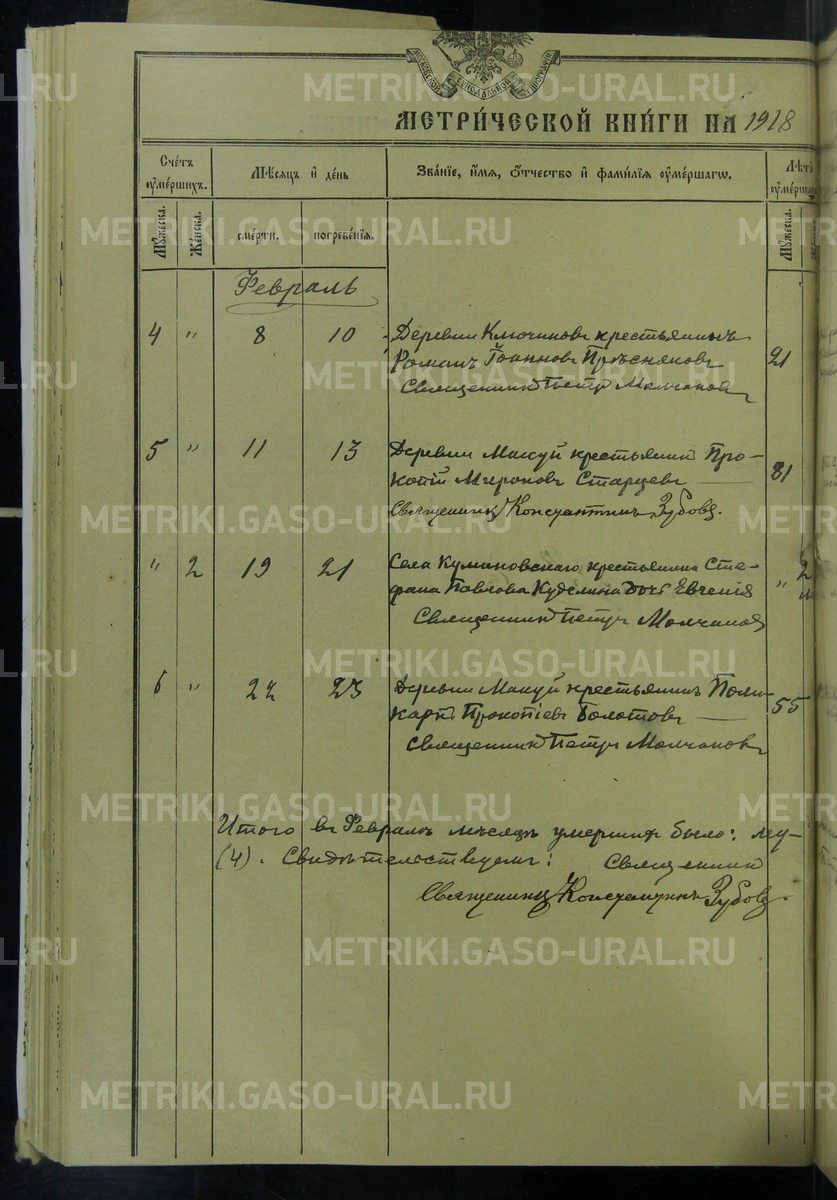 МОСКОВСКОЙ СѴНОДАЛЬНОЙ ТИПОГРАФІИ
МЕТРИ́ЧЕСКОЙ КНИ́ГИ НА 1918
Сче́тъ оуме́ршихъ.
Мѣ́сяцъ и де́нь
Зва́нїе, и́мя, ѻ́тчество и фами́лїя оуме́ршагѡ.
Лѣ́та
оуме́рша
Му́жеска.
Же́нска.
сме́рти.
погребе́нїя.
Му́жеска.
Февраль
4 " 8 10 Деревни Ключинов крестьянинъ
Романъ Іоанновъ Прѣсняковъ 21
Священникъ Петръ Молчановъ
5 " 11 13 Деревни Макуй крестьянинъ Про-
копій Мироновъ Старцевъ — 81
Священникъ Константинъ Зубовъ.
" 2 19 21 Села Кумановскаго крестьянина Сте-
фана Павлова Куделина дочь Евгенія " 2
Священникъ Петръ Молчановъ
6 " 22 23 Деревни Макуй крестьянинъ Поли-
карпъ Прокопіевъ Болотовъ — 55
Священникъ Петръ Молчановъ
Итого въ Февралѣ мѣсяцѣ умершихъ было: му-
(4). Свидѣтельствуемъ: Священникъ
Священникъ Константинъ Зубовъ.
METRIKI.GASO-URAL.RU